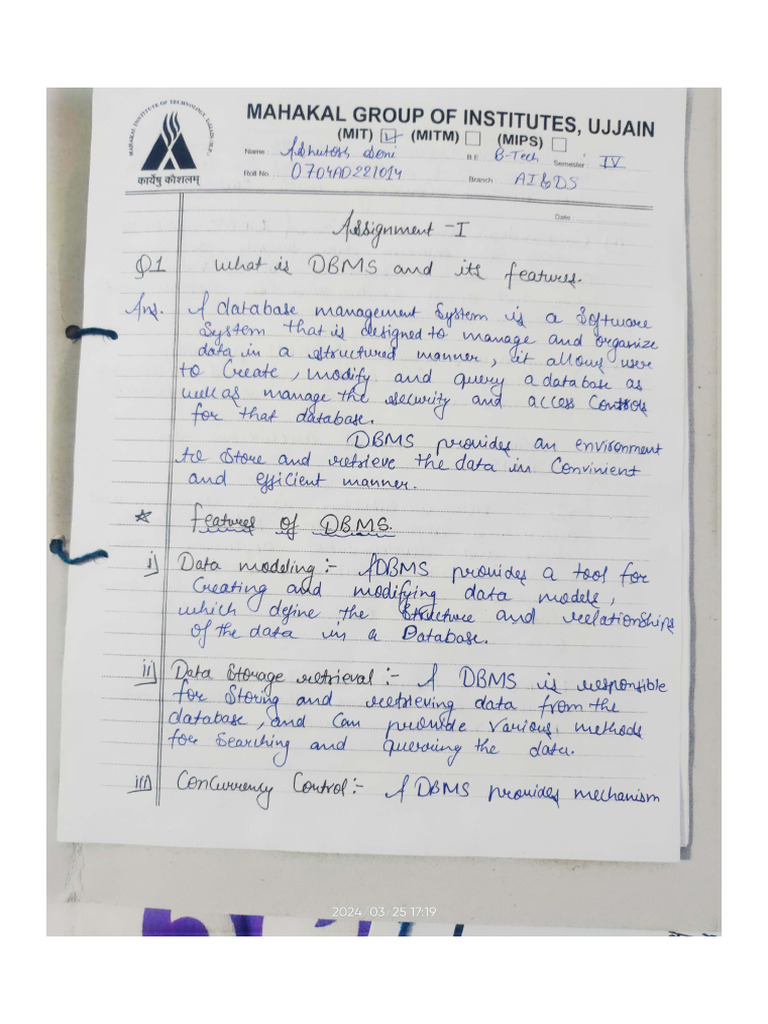 MAHAKAL INSTITUTE OF TECHNOLOGY, UJJAIN (M.P.)
कार्येषु कौशलम्
MAHAKAL GROUP OF INSTITUTES, UJJAIN
(MIT) (MITM) (MIPS)
Name Ashutosh Soni B.E. B-Tech Semester IV
Roll No. 0704AD221014 Branch AI&DS
Date
Assignment -I
Q1 what is DBMS and its features.
Ans. A database management System is a Software
System that is designed to manage and organize
data in a structured manner, it allows user
to Create, modify and query a database as
well as manage the security and access Controls
for that database.
DBMS provides an environment
to Store and retrieve the data in Convinient
and efficient manner.
☆ features of DBMS.
i) Data modeling :- A DBMS provides a tool for
Creating and modifying data models,
which define the Structure and relationships
of the data in a Database.
ii) Data Storage retrieval :- A DBMS is responsible
for Storing and retrieving data from the
database, and Can provide various methods
for Searching and querying the data.
iii) Concurrency Control :- A DBMS provides mechanism
2024/03/25 17:19